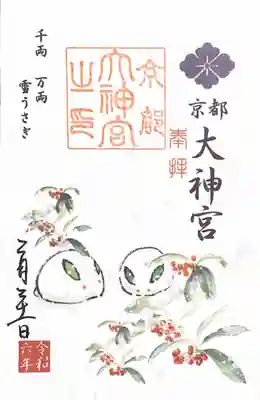 京都
大神宮
奉拝
京都
大神宮
之印
千両 万両
雪うさぎ
令和
六年